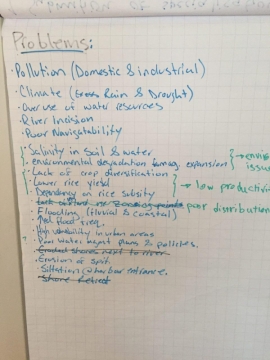 Problems:
· Pollution (Domestic & industrial)
· Climate (Excess Rain & Drought)
· Over use of water resources
· River Incision
· Poor Navigability
· Salinity in Soil & water
· environmental degradation farming expansion } → enviro
issue
· Lack of crop diversification
· Lower rice yield } → low productivi
· Dependency on rice subsidy
poor distribution
· Flooding (fluvial & coastal)
· flood freq.
· High vulnerability in urban areas
· Poor Water mgmt plans & policies.
· Eroded shores next to river
· Erosion of spit.
· Siltation @ harbour entrance.
· Shore Retreat